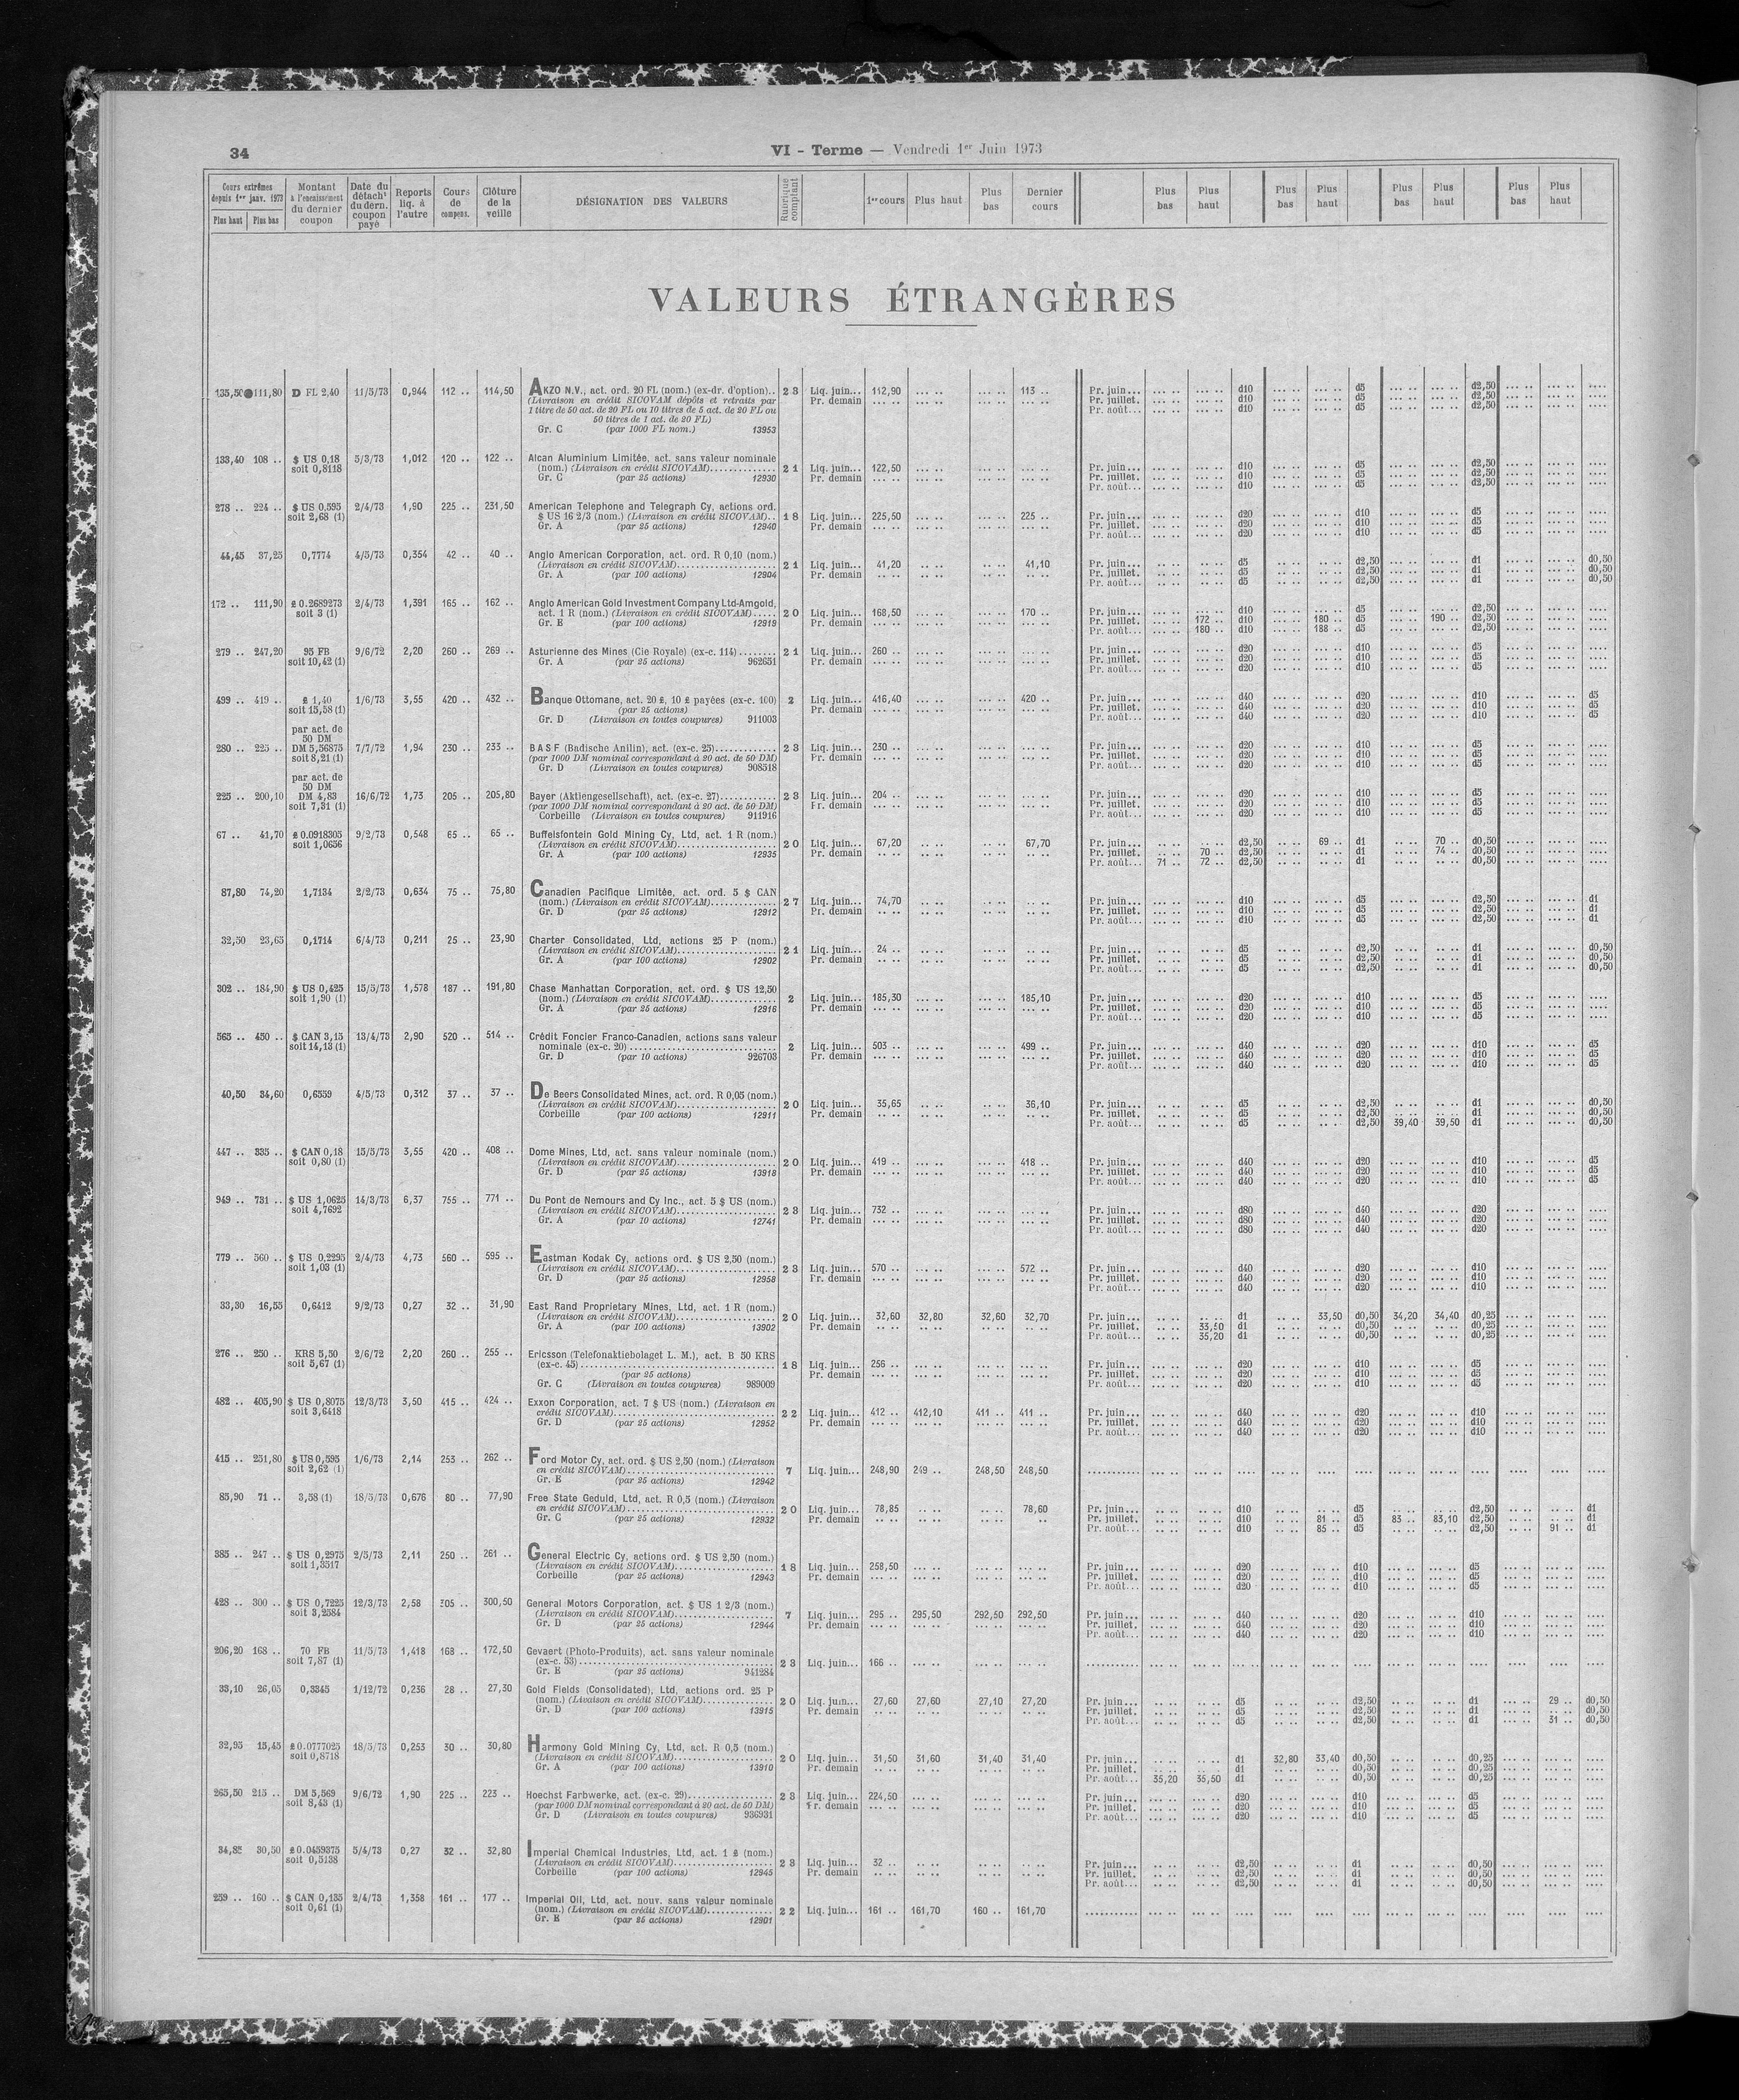 34
VI - Terme — Vendredi 1er Juin 1973
Cours extrêmes depuis 1er janv. 1973 Plus haut Plus bas | Montant à l'encaissement du dernier coupon | Date du détacht du dern. coupon payé | Reports liq. à l'autre | Cours de compens. | Clôture de la veille | DÉSIGNATION DES VALEURS | Rubrique comptant | 1er cours | Plus haut | Plus bas | Dernier cours | Plus bas | Plus haut | Plus bas | Plus haut | Plus bas | Plus haut | Plus bas | Plus haut
VALEURS ÉTRANGÈRES
135,50 111,80 D FL 2,40 11/5/73 0,944 112 .. 114,50 AKZO N.V., act. ord. 20 FL (nom.) (ex-dr. d'option).. 23 Liq. juin... 112,90 ... .. ... .. 113 .. Pr. juin... d10 d5 d2,50
(Livraison en crédit SICOVAM dépôts et retraits par Pr. demain Pr. juillet. d10 d5 d2,50
1 titre de 50 act. de 20 FL ou 10 titres de 5 act. de 20 FL ou Pr. août... d10 d5 d2,50
50 titres de 1 act. de 20 FL)
Gr. C (par 1000 FL nom.) 13953
133,40 108 .. $ US 0,18 5/3/73 1,012 120 .. 122 .. Alcan Aluminium Limitée, act. sans valeur nominale
soit 0,8118 (nom.) (Livraison en crédit SICOVAM) 21 Liq. juin... 122,50 Pr. juin... d10 d5 d2,50
Gr. C (par 25 actions) 12930 Pr. demain Pr. juillet. d10 d5 d2,50
Pr. août... d10 d5 d2,50
278 .. 224 .. $ US 0,595 2/4/73 1,90 225 .. 231,50 American Telephone and Telegraph Cy, actions ord.
soit 2,68 (1) $ US 16 2/3 (nom.) (Livraison en crédit SICOVAM).. 18 Liq. juin... 225,50 225 .. Pr. juin... d20 d10 d5
Gr. A (par 25 actions) 12940 Pr. demain Pr. juillet. d20 d10 d5
Pr. août... d20 d10 d5
44,45 37,25 0,7774 4/5/73 0,354 42 .. 40 .. Anglo American Corporation, act. ord. R 0,10 (nom.)
(Livraison en crédit SICOVAM) 21 Liq. juin... 41,20 41,10 Pr. juin... d5 d2,50 d1 d0,50
Gr. A (par 100 actions) 12904 Pr. demain Pr. juillet. d5 d2,50 d1 d0,50
Pr. août... d5 d2,50 d1 d0,50
172 .. 111,90 £ 0.2689273 2/4/73 1,391 165 .. 162 .. Anglo American Gold Investment Company Ltd-Amgold,
soit 3 (1) act. 1 R (nom.) (Livraison en crédit SICOVAM) 20 Liq. juin... 168,50 170 .. Pr. juin... d10 d5 d2,50
Gr. E (par 100 actions) 12919 Pr. demain Pr. juillet. 172 .. d10 180 .. d5 190 .. d2,50
Pr. août... 180 .. d10 188 .. d5 d2,50
279 .. 247,20 95 FB 9/6/72 2,20 260 .. 269 .. Asturienne des Mines (Cie Royale) (ex-c. 114) 21 Liq. juin... 260 .. Pr. juin... d20 d10 d5
soit 10,42 (1) Gr. A (par 25 actions) 962651 Pr. demain Pr. juillet. d20 d10 d5
Pr. août... d20 d10 d5
499 .. 419 .. £ 1,40 1/6/73 3,55 420 .. 432 .. Banque Ottomane, act. 20 £, 10 £ payées (ex-c. 100) 2 Liq. juin... 416,40 420 .. Pr. juin... d40 d20 d10 d5
soit 15,58 (1) (par 25 actions) Pr. demain Pr. juillet. d40 d20 d10 d5
Gr. D (Livraison en toutes coupures) 911003 Pr. août... d40 d20 d10 d5
par act. de
50 DM
280 .. 225 .. DM 5,56875 7/7/72 1,94 230 .. 233 .. B A S F (Badische Anilin), act. (ex-c. 25) 23 Liq. juin... 230 .. Pr. juin... d20 d10 d5
soit 8,21 (1) (par 1000 DM nominal correspondant à 20 act. de 50 DM) Pr. demain Pr. juillet. d20 d10 d5
Gr. D (Livraison en toutes coupures) 908518 Pr. août... d20 d10 d5
par act. de
50 DM
225 .. 200,10 DM 4,83 16/6/72 1,73 205 .. 205,80 Bayer (Aktiengesellschaft), act. (ex-c. 27) 23 Liq. juin... 204 .. Pr. juin... d20 d10 d5
soit 7,31 (1) (par 1000 DM nominal correspondant à 20 act. de 50 DM) Pr. demain Pr. juillet. d20 d10 d5
Corbeille (Livraison en toutes coupures) 911916 Pr. août... d20 d10 d5
67 .. 41,70 £ 0.0918305 9/2/73 0,548 65 .. 65 .. Buffelsfontein Gold Mining Cy, Ltd, act. 1 R (nom.)
soit 1,0656 (Livraison en crédit SICOVAM) 20 Liq. juin... 67,20 67,70 Pr. juin... d2,50 69 .. d1 70 .. d0,50
Gr. A (par 100 actions) 12935 Pr. demain Pr. juillet. 70 .. d2,50 d1 74 .. d0,50
Pr. août... 71 .. 72 .. d2,50 d1 d0,50
87,80 74,20 1,7134 2/2/73 0,634 75 .. 75,80 Canadien Pacifique Limitée, act. ord. 5 $ CAN
(nom.) (Livraison en crédit SICOVAM) 27 Liq. juin... 74,70 Pr. juin... d10 d5 d2,50 d1
Gr. D (par 25 actions) 12912 Pr. demain Pr. juillet. d10 d5 d2,50 d1
Pr. août... d10 d5 d2,50 d1
32,50 23,65 0,1714 6/4/73 0,211 25 .. 23,90 Charter Consolidated, Ltd, actions 25 P (nom.)
(Livraison en crédit SICOVAM) 21 Liq. juin... 24 .. Pr. juin... d5 d2,50 d1 d0,50
Gr. A (par 100 actions) 12902 Pr. demain Pr. juillet. d5 d2,50 d1 d0,50
Pr. août... d5 d2,50 d1 d0,50
302 .. 184,90 $ US 0,425 15/5/73 1,578 187 .. 191,80 Chase Manhattan Corporation, act. ord. $ US 12,50
soit 1,90 (1) (nom.) (Livraison en crédit SICOVAM) 2 Liq. juin... 185,30 185,10 Pr. juin... d20 d10 d5
Gr. A (par 25 actions) 12916 Pr. demain Pr. juillet. d20 d10 d5
Pr. août... d20 d10 d5
565 .. 450 .. $ CAN 3,15 13/4/73 2,90 520 .. 514 .. Crédit Foncier Franco-Canadien, actions sans valeur
soit 14,13 (1) nominale (ex-c. 20) 2 Liq. juin... 503 .. 499 .. Pr. juin... d40 d20 d10 d5
Gr. D (par 10 actions) 926703 Pr. demain Pr. juillet. d40 d20 d10 d5
Pr. août... d40 d20 d10 d5
40,50 34,60 0,6559 4/5/73 0,312 37 .. 37 .. De Beers Consolidated Mines, act. ord. R 0,05 (nom.)
(Livraison en crédit SICOVAM) 20 Liq. juin... 35,65 36,10 Pr. juin... d5 d2,50 d1 d0,50
Corbeille (par 100 actions) 12911 Pr. demain Pr. juillet. d5 d2,50 d1 d0,50
Pr. août... d5 d2,50 39,40 39,50 d1 d0,50
447 .. 335 .. $ CAN 0,18 15/5/73 3,55 420 .. 408 .. Dome Mines, Ltd, act. sans valeur nominale (nom.)
soit 0,80 (1) (Livraison en crédit SICOVAM) 20 Liq. juin... 419 .. 418 .. Pr. juin... d40 d20 d10 d5
Gr. D (par 25 actions) 13918 Pr. demain Pr. juillet. d40 d20 d10 d5
Pr. août... d40 d20 d10 d5
949 .. 731 .. $ US 1,0625 14/3/73 6,37 755 .. 771 .. Du Pont de Nemours and Cy Inc., act. 5 $ US (nom.)
soit 4,7692 (Livraison en crédit SICOVAM) 23 Liq. juin... 732 .. Pr. juin... d80 d40 d20
Gr. A (par 10 actions) 12741 Pr. demain Pr. juillet. d80 d40 d20
Pr. août... d80 d40 d20
779 .. 560 .. $ US 0,2295 2/4/73 4,73 560 .. 595 .. Eastman Kodak Cy, actions ord. $ US 2,50 (nom.)
soit 1,03 (1) (Livraison en crédit SICOVAM) 23 Liq. juin... 570 .. 572 .. Pr. juin... d40 d20 d10
Gr. D (par 25 actions) 12958 Pr. demain Pr. juillet. d40 d20 d10
Pr. août... d40 d20 d10
33,30 16,55 0,6412 9/2/73 0,27 32 .. 31,90 East Rand Proprietary Mines, Ltd, act. 1 R (nom.)
(Livraison en crédit SICOVAM) 20 Liq. juin... 32,60 32,80 32,60 32,70 Pr. juin... d1 33,50 d0,50 34,20 34,40 d0,25
Gr. A (par 100 actions) 13902 Pr. demain Pr. juillet. 33,50 d1 d0,50 d0,25
Pr. août... 35,20 d1 d0,50 d0,25
276 .. 250 .. KRS 5,50 2/6/72 2,20 260 .. 255 .. Ericsson (Telefonaktiebolaget L. M.), act. B 50 KRS
soit 5,67 (1) (ex-c. 45) 18 Liq. juin... 256 .. Pr. juin... d20 d10 d5
(par 25 actions) Pr. demain Pr. juillet. d20 d10 d5
Gr. C (Livraison en toutes coupures) 989009 Pr. août... d20 d10 d5
482 .. 405,90 $ US 0,8075 12/3/73 3,50 415 .. 424 .. Exxon Corporation, act. 7 $ US (nom.) (Livraison en
soit 3,6418 crédit SICOVAM) 22 Liq. juin... 412 .. 412,10 411 .. 411 .. Pr. juin... d40 d20 d10
Gr. D (par 25 actions) 12952 Pr. demain Pr. juillet. d40 d20 d10
Pr. août... d40 d20 d10
415 .. 251,80 $ US 0,595 1/6/73 2,14 253 .. 262 .. Ford Motor Cy, act. ord. $ US 2,50 (nom.) (Livraison
soit 2,62 (1) en crédit SICOVAM) 7 Liq. juin... 248,90 249 .. 248,50 248,50
Gr. E (par 25 actions) 12942
85,90 71 .. 3,58 (1) 18/5/73 0,676 80 .. 77,90 Free State Geduld, Ltd, act. R 0,5 (nom.) (Livraison
en crédit SICOVAM) 20 Liq. juin... 78,85 78,60 Pr. juin... d10 d5 d2,50 d1
Gr. C (par 25 actions) 12932 Pr. demain Pr. juillet. d10 81 .. d5 83 .. 83,10 d2,50 d1
Pr. août... d10 85 .. d5 d2,50 91 .. d1
385 .. 247 .. $ US 0,2975 2/5/73 2,11 250 .. 261 .. General Electric Cy, actions ord. $ US 2,50 (nom.)
soit 1,3517 (Livraison en crédit SICOVAM) 18 Liq. juin... 258,50 Pr. juin... d20 d10 d5
Corbeille (par 25 actions) 12943 Pr. demain Pr. juillet. d20 d10 d5
Pr. août... d20 d10 d5
428 .. 300 .. $ US 0,7225 12/3/73 2,58 305 .. 300,50 General Motors Corporation, act. $ US 1 2/3 (nom.)
soit 3,2584 (Livraison en crédit SICOVAM) 7 Liq. juin... 295 .. 295,50 292,50 292,50 Pr. juin... d40 d20 d10
Gr. D (par 25 actions) 12944 Pr. demain Pr. juillet. d40 d20 d10
Pr. août... d40 d20 d10
206,20 168 .. 70 FB 11/5/73 1,418 168 .. 172,50 Gevaert (Photo-Produits), act. sans valeur nominale
soit 7,87 (1) (ex-c. 53) 23 Liq. juin... 166 ..
Gr. E (par 25 actions) 941284
33,10 26,05 0,3345 1/12/72 0,236 28 .. 27,30 Gold Fields (Consolidated), Ltd, actions ord. 25 P
(nom.) (Livraison en crédit SICOVAM) 20 Liq. juin... 27,60 27,60 27,10 27,20 Pr. juin... d5 d2,50 d1 29 .. d0,50
Gr. D (par 100 actions) 13915 Pr. demain Pr. juillet. d5 d2,50 d1 d0,50
Pr. août... d5 d2,50 d1 31 .. d0,50
32,95 15,45 £ 0.0777025 18/5/73 0,253 30 .. 30,80 Harmony Gold Mining Cy, Ltd, act. R 0,5 (nom.)
soit 0,8718 (Livraison en crédit SICOVAM) 20 Liq. juin... 31,50 31,60 31,40 31,40 Pr. juin... d1 32,80 33,40 d0,50 d0,25
Gr. A (par 100 actions) 13910 Pr. demain Pr. juillet. d1 d0,50 d0,25
Pr. août... 35,20 35,50 d1 d0,50 d0,25
265,50 215 .. DM 5,569 9/6/72 1,90 225 .. 223 .. Hoechst Farbwerke, act. (ex-c. 29) 23 Liq. juin... 224,50 Pr. juin... d20 d10 d5
soit 8,43 (1) (par 1000 DM nominal correspondant à 20 act. de 50 DM) Pr. demain Pr. juillet. d20 d10 d5
Gr. D (Livraison en toutes coupures) 936931 Pr. août... d20 d10 d5
34,85 30,50 £ 0.0459375 5/4/73 0,27 32 .. 32,80 Imperial Chemical Industries, Ltd, act. 1 £ (nom.)
soit 0,5138 (Livraison en crédit SICOVAM) 23 Liq. juin... 32 .. Pr. juin... d2,50 d1 d0,50
Corbeille (par 100 actions) 12945 Pr. demain Pr. juillet. d2,50 d1 d0,50
Pr. août... d2,50 d1 d0,50
259 .. 160 .. $ CAN 0,135 2/4/73 1,358 161 .. 177 .. Imperial Oil, Ltd, act. nouv. sans valeur nominale
soit 0,61 (1) (nom.) (Livraison en crédit SICOVAM) 22 Liq. juin... 161 .. 161,70 160 .. 161,70
Gr. E (par 25 actions) 12901